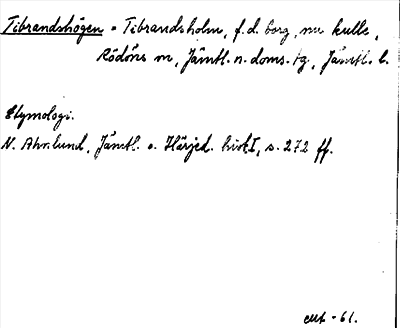 Tibrandshögen = Tibrandsholm, f.d. borg, nu kulle,
Rödöns sn, Jämtl. n. doms. tg, Jämtl. l.
Etymologi.
N. Ahnlund, Jämtl. o. Härjed. hist I, s. 272 ff.
-61.